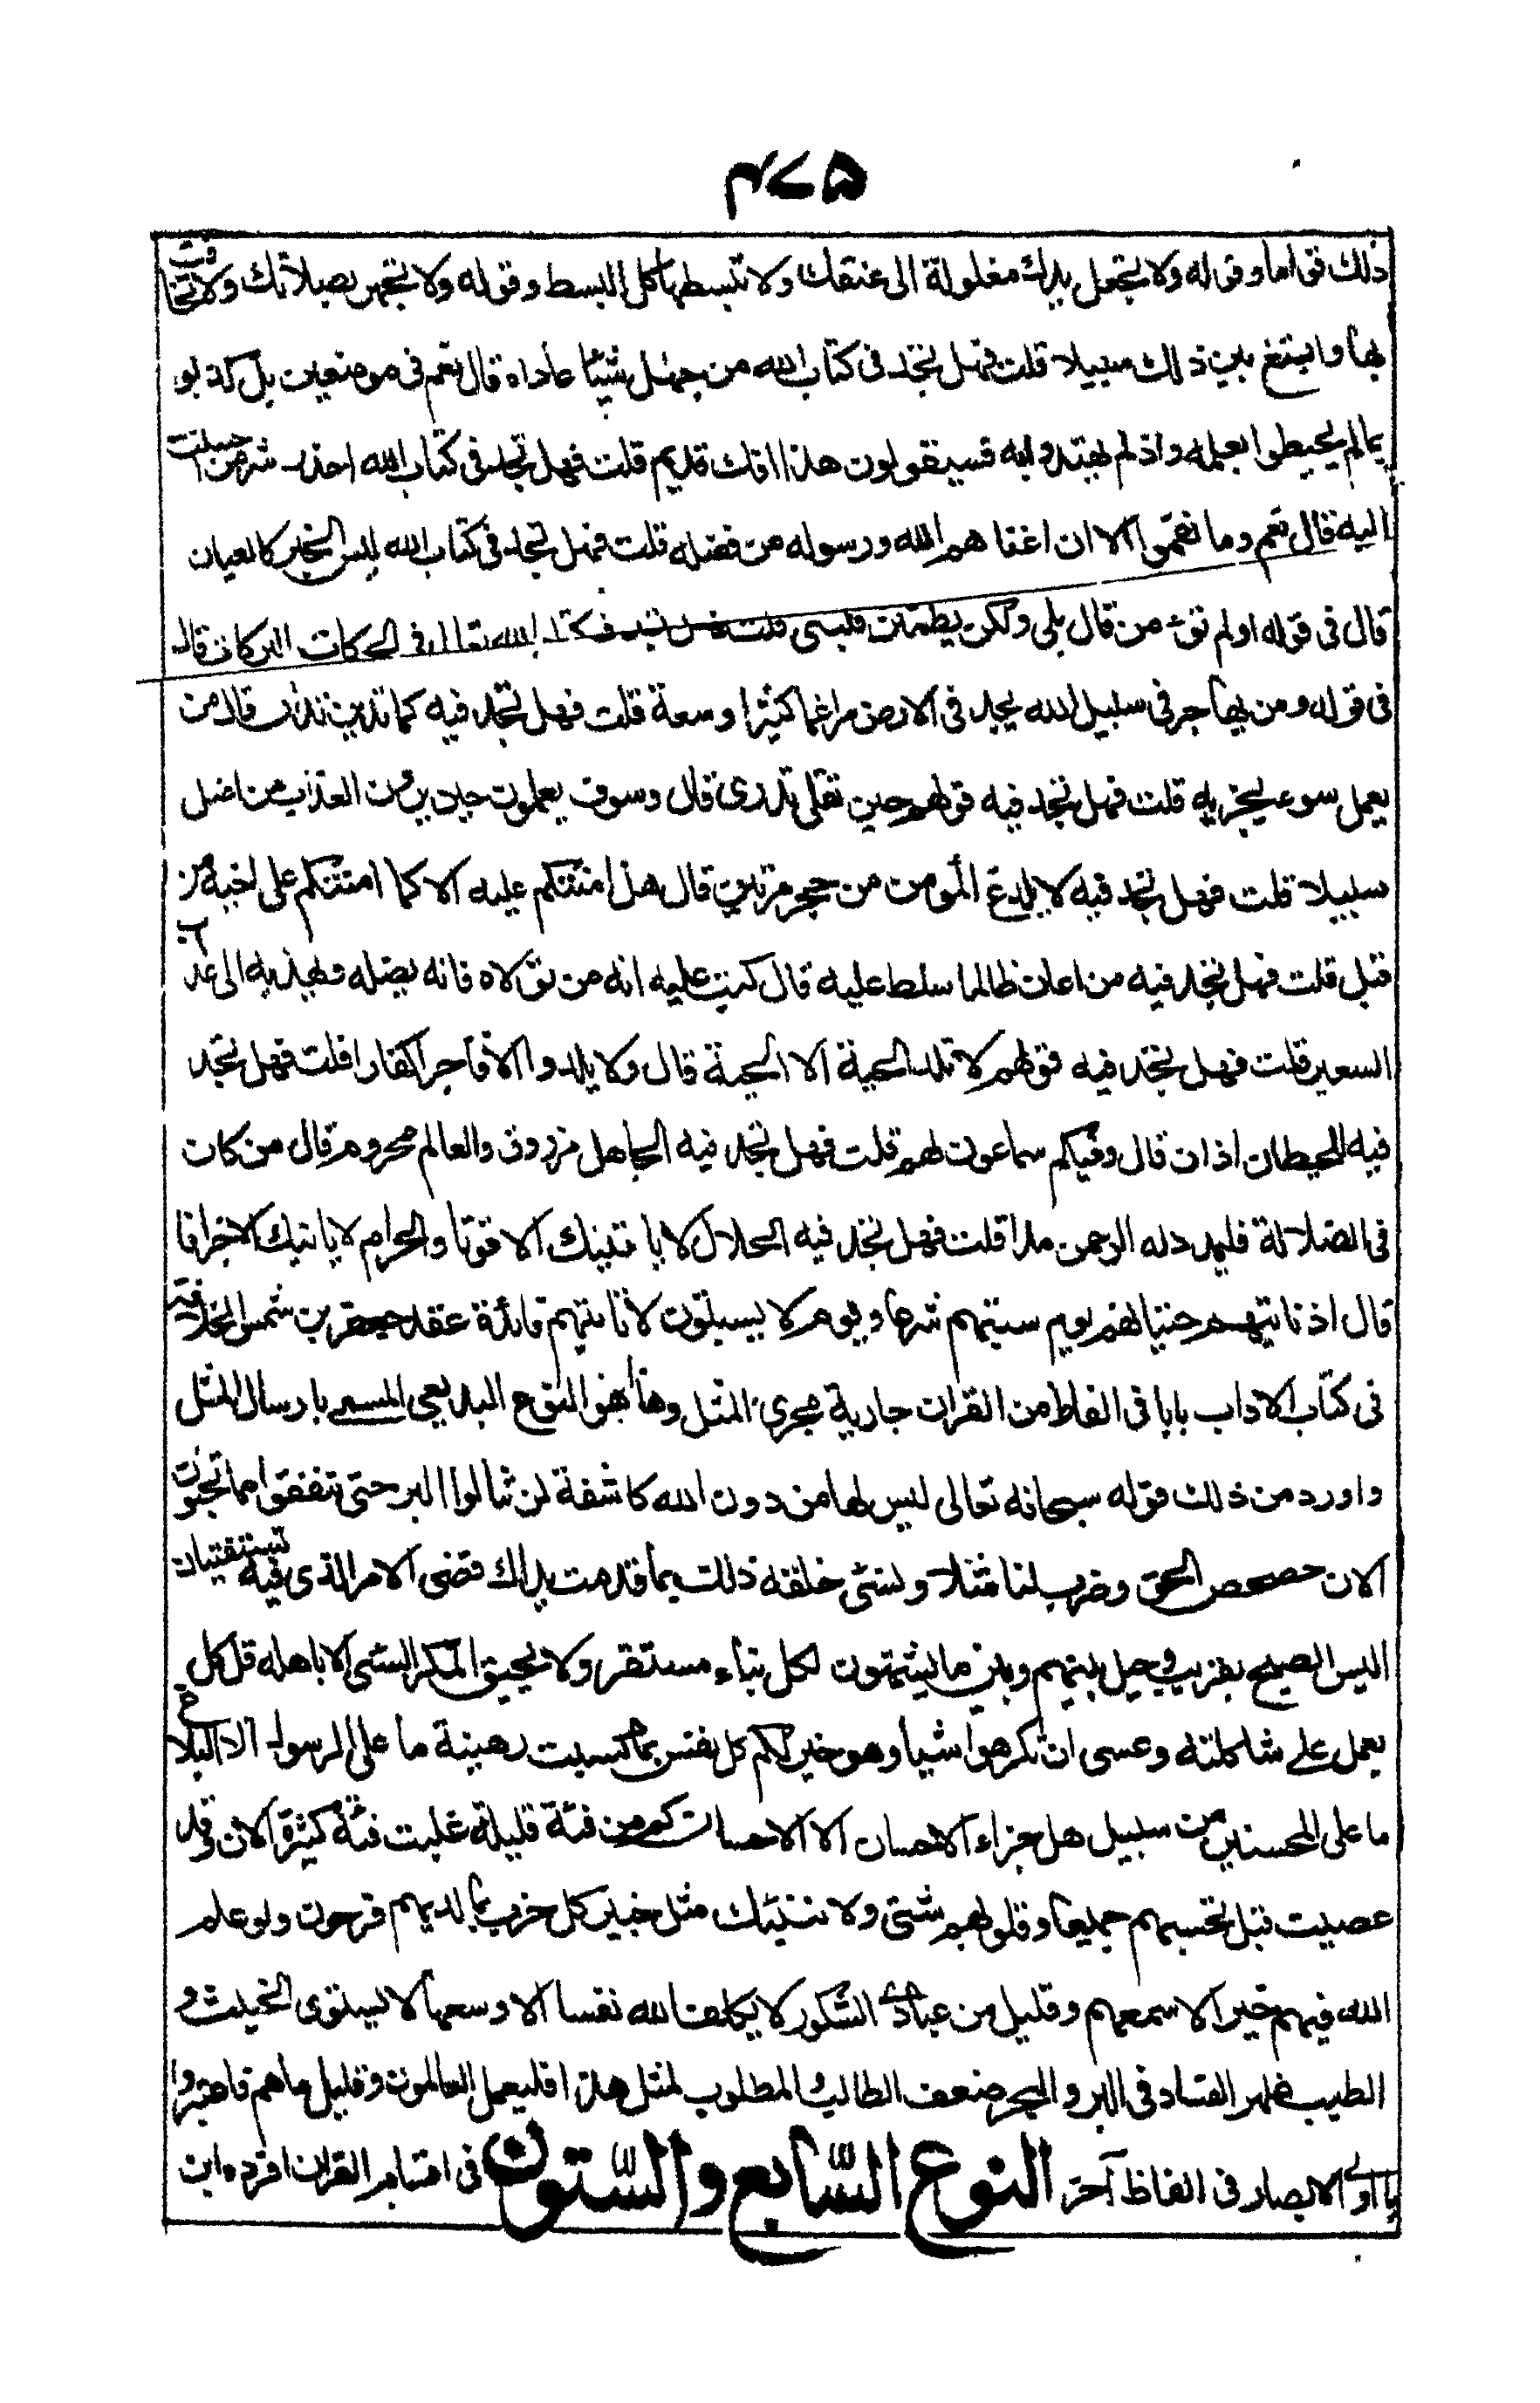 ۴۷۵
ذلك قواما وقوله ولا تجعل يدك مغلولة الى عنقك ولا تبسطها كل البسط وقوله ولا تجهر بصلاتك ولا تخافت
بها وابتغ بين ذلك سبيلا قلت فهل تجد فى كتاب الله من جهل شيئا عاداه قال نعم فى موضعين بل كذبو
بمالم يحيطوا بعلمه واذ لم يهتدوا به فسيقولون هذا افك قديم قلت فهل تجد فى كتاب الله احذر شر من احسنت
اليه قال نعم وما نقموا الا ان اغناهم الله ورسوله من فضله قلت فهل تجد فى كتاب الله ليس الخبر كالعيان
قال فى قوله اولم تؤمن قال بلى ولكن ليطمئن قلبى قلت فهل تجد فى كتاب الله تعالى فى الحركات البركات قال
فى قوله ومن يهاجر فى سبيل الله يجد فى الارض مراغما كثيرا وسعة قلت فهل تجد فيه كما تدين تدان قال من
يعمل سوء يجز به قلت فهل تجد فيه قولهم حين تقلى تدرى قال وسوف يعلمون حين يرون العذاب من اضل
سبيلا قلت فهل تجد فيه لا يلدغ المومن من حجر مرتين قال هل امنتكم عليه الا كما امنتكم على اخيه من
قبل قلت فهل تجد فيه من اعان ظالما سلط عليه قال كتب عليه انه من تولاه فانه يضله ويهديه الى عذاب
السعير قلت فهل تجد فيه قولهم لا تلد الحية الا الحية قال ولا يلدوا الا فاجرا كفارا قلت فهل تجد
فيه للحيطان اذان قال وفيكم سماعون لهم قلت فهل تجد فيه الجاهل مرزوق والعالم محروم قال من كان
فى الضلالة فليمدد له الرحمن مدا قلت فهل تجد فيه الحلال لا ياتيك الا قوتا والحرام لا ياتيك الا جزافا
قال اذ تاتيهم حيتانهم يوم سبتهم شرعا ويوم لا يسبتون لا تاتيهم فائدة عقد جعفر بن شمس الخلافة
فى كتاب الاداب بابا فى الفاظ من القران جارية مجرى المثل وهذا هو النوع البديعى المسمى بارسال المثل
واورد من ذلك قوله سبحانه تعالى ليس لها من دون الله كاشفة لن تنالوا البر حتى تنفقوا مما تحبون
الان حصحص الحق وضرب لنا مثلا ونسى خلقه ذلك بما قدمت يداك قضى الامر الذى فيه تستفتيان
اليس الصبح بقريب وحيل بينهم وبين ما يشتهون لكل نباء مستقر ولا يحيق المكر السئى الا باهله قل كل
يعمل على شاكلته وعسى ان تكرهوا شيا وهو خير لكم كل نفس بما كسبت رهينة ما على الرسول الا البلاغ
ما على المحسنين من سبيل هل جزاء الاحسان الا الاحسان كم من فئة قليلة غلبت فئة كثيرة الان وقد
عصيت قبل تحسبهم جميعا وقلوبهم شتى ولا ينبئك مثل خبير كل حزب بما لديهم فرحون ولو علم
الله فيهم خيرا لاسمعهم وقليل من عبادى الشكور لا يكلف الله نفسا الا وسعها لا يستوى الخبيث و
الطيب ظهر الفساد فى البر والبحر ضعف الطالب والمطلوب لمثل هذا فليعمل العالمون وقليل ما هم فاعتبروا
يا اولى الابصار فى الفاظ آخر النوع السّابع والسّتون فى اقسام القران افرده ابن